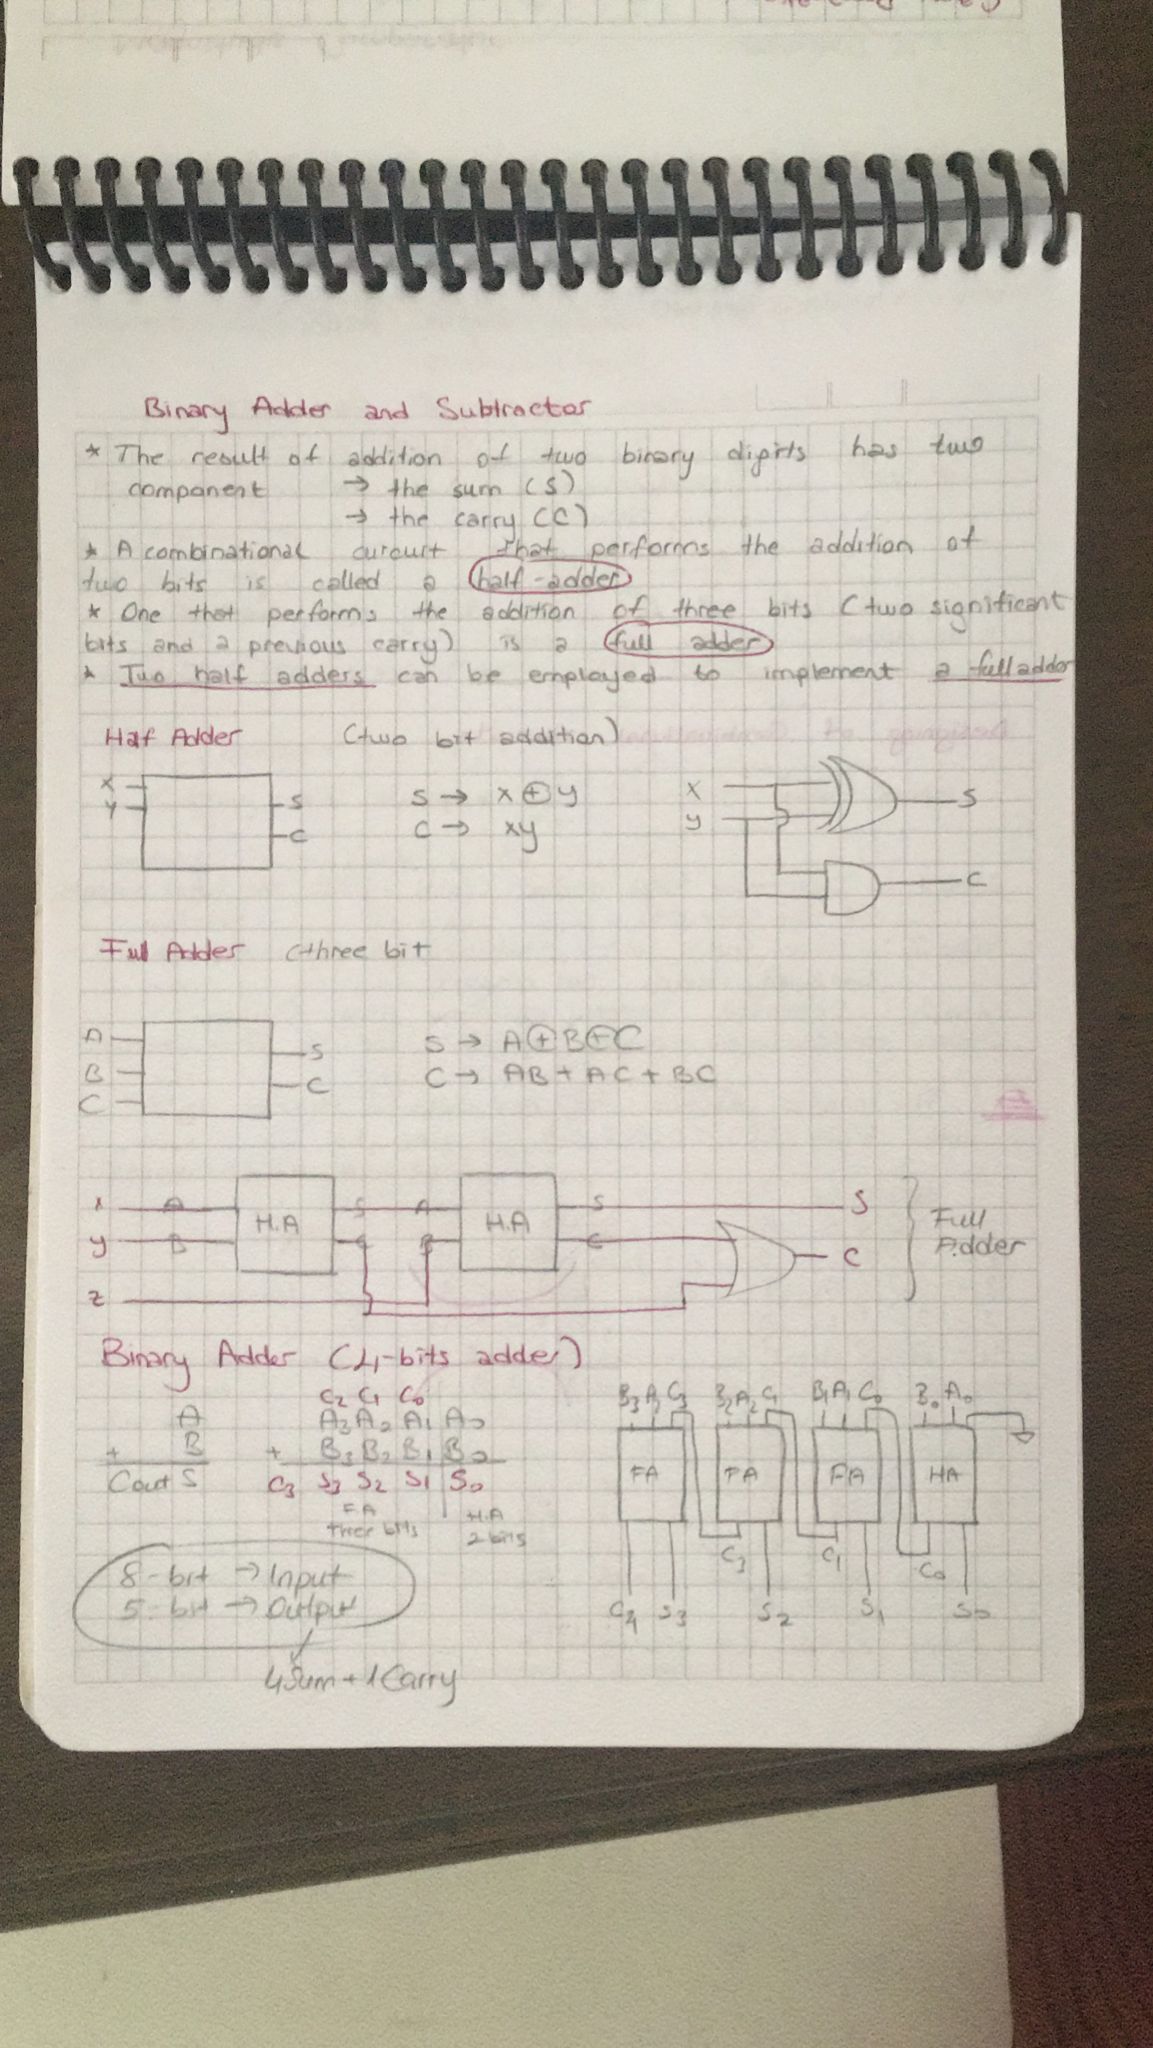 Binary Adder and Subtractor
* The result of addition of two binary digits has two
component → the sum (S)
→ the carry (C)
* A combinational circuit that performs the addition of
two bits is called a half-adder
* One that performs the addition of three bits (two significant
bits and a previous carry) is a full adder
* Two half adders can be employed to implement a full adder
Half Adder (two bit addition)
x
y
S
C
S → x ⊕ y
C → xy
x
y
S
C
Full Adder (three bit
A
B
C
S
C
S → A ⊕ B ⊕ C
C → AB + AC + BC
x A H.A S A H.A S S
y B C B C C
z
Full
Adder
Binary Adder (4-bits adder)
C2 C1 C0
A A3 A2 A1 A0
+ B + B3 B2 B1 B0
Cout S C3 S3 S2 S1 S0
F.A H.A
three bits 2 bits
8-bit → Input
5-bit → Output
4 Sum + 1 Carry
B3 A3 C3 B2 A2 C1 B1 A1 C0 B0 A0
FA FA FA HA
C3 C1 C0
C4 S3 S2 S1 S0